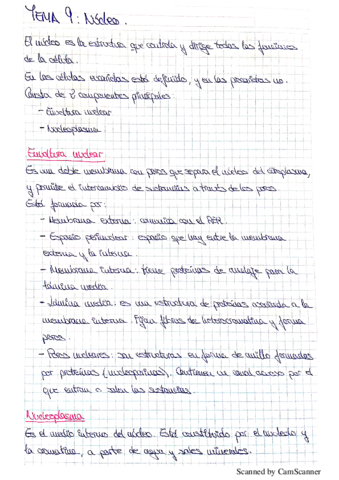 TEMA 9: Núcleo.
El núcleo es la estructura que controla y dirige todas las funciones
de la célula.
En las células eucariotas está definido, y en las procariotas no.
Consta de 2 componentes principales:
- Envoltura nuclear
- Nucleoplasma
Envoltura nuclear
Es una doble membrana con poros que separa el núcleo del citoplasma,
y permite el intercambio de sustancias a través de los poros.
Está formada por:
- Membrana externa: comunica con el RER.
- Espacio perinuclear: espacio que hay entre la membrana
externa y la interna.
- Membrana interna: tiene proteínas de anclaje para la
lámina nuclear.
- Lámina nuclear: es una estructura de proteínas asociada a la
membrana interna. Fijan fibras de heterocromatina y forma
poros.
- Poros nucleares: son estructuras en forma de anillo formadas
por proteínas (nucleoporinas). Contienen un canal acuoso por el
que entran o salen las sustancias.
Nucleoplasma
Es el medio interno del núcleo. Está constituido por el nucleolo y
la cromatina, a parte de agua y sales minerales.
Scanned by CamScanner